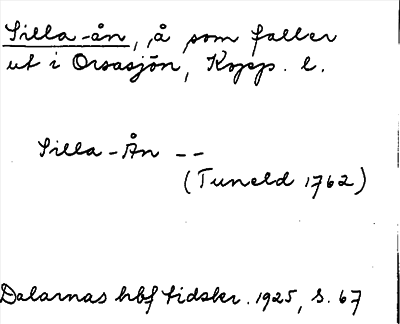 Silla-ån, å som faller
ut i Orsasjön, Kopp. l.
Silla-Ån --
(Tuneld 1762)
Dalarnas hbf tidskr. 1925, s. 67